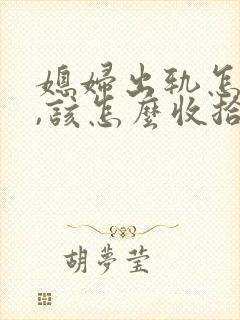 媳婦出軌怎
,該怎麼收拾
胡夢瑩